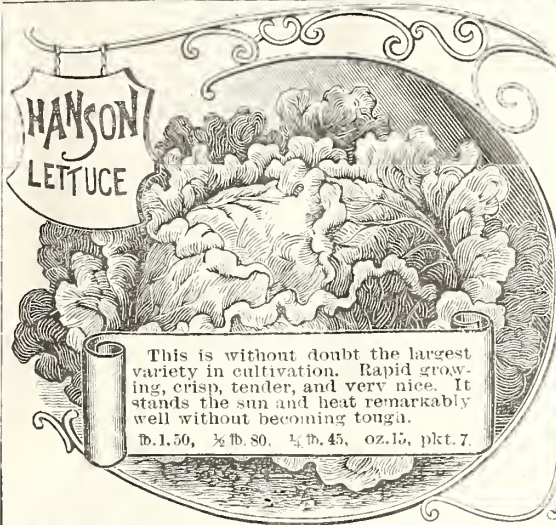 HANSON
LETTUCE
This is without doubt the largest
variety in cultivation. Rapid grow-
ing, crisp, tender, and very nice. It
stands the sun and heat remarkably
well without becoming tough.
℔. 1.50, ½ ℔. 80, ¼ ℔. 45, oz. 15, pkt. 7.